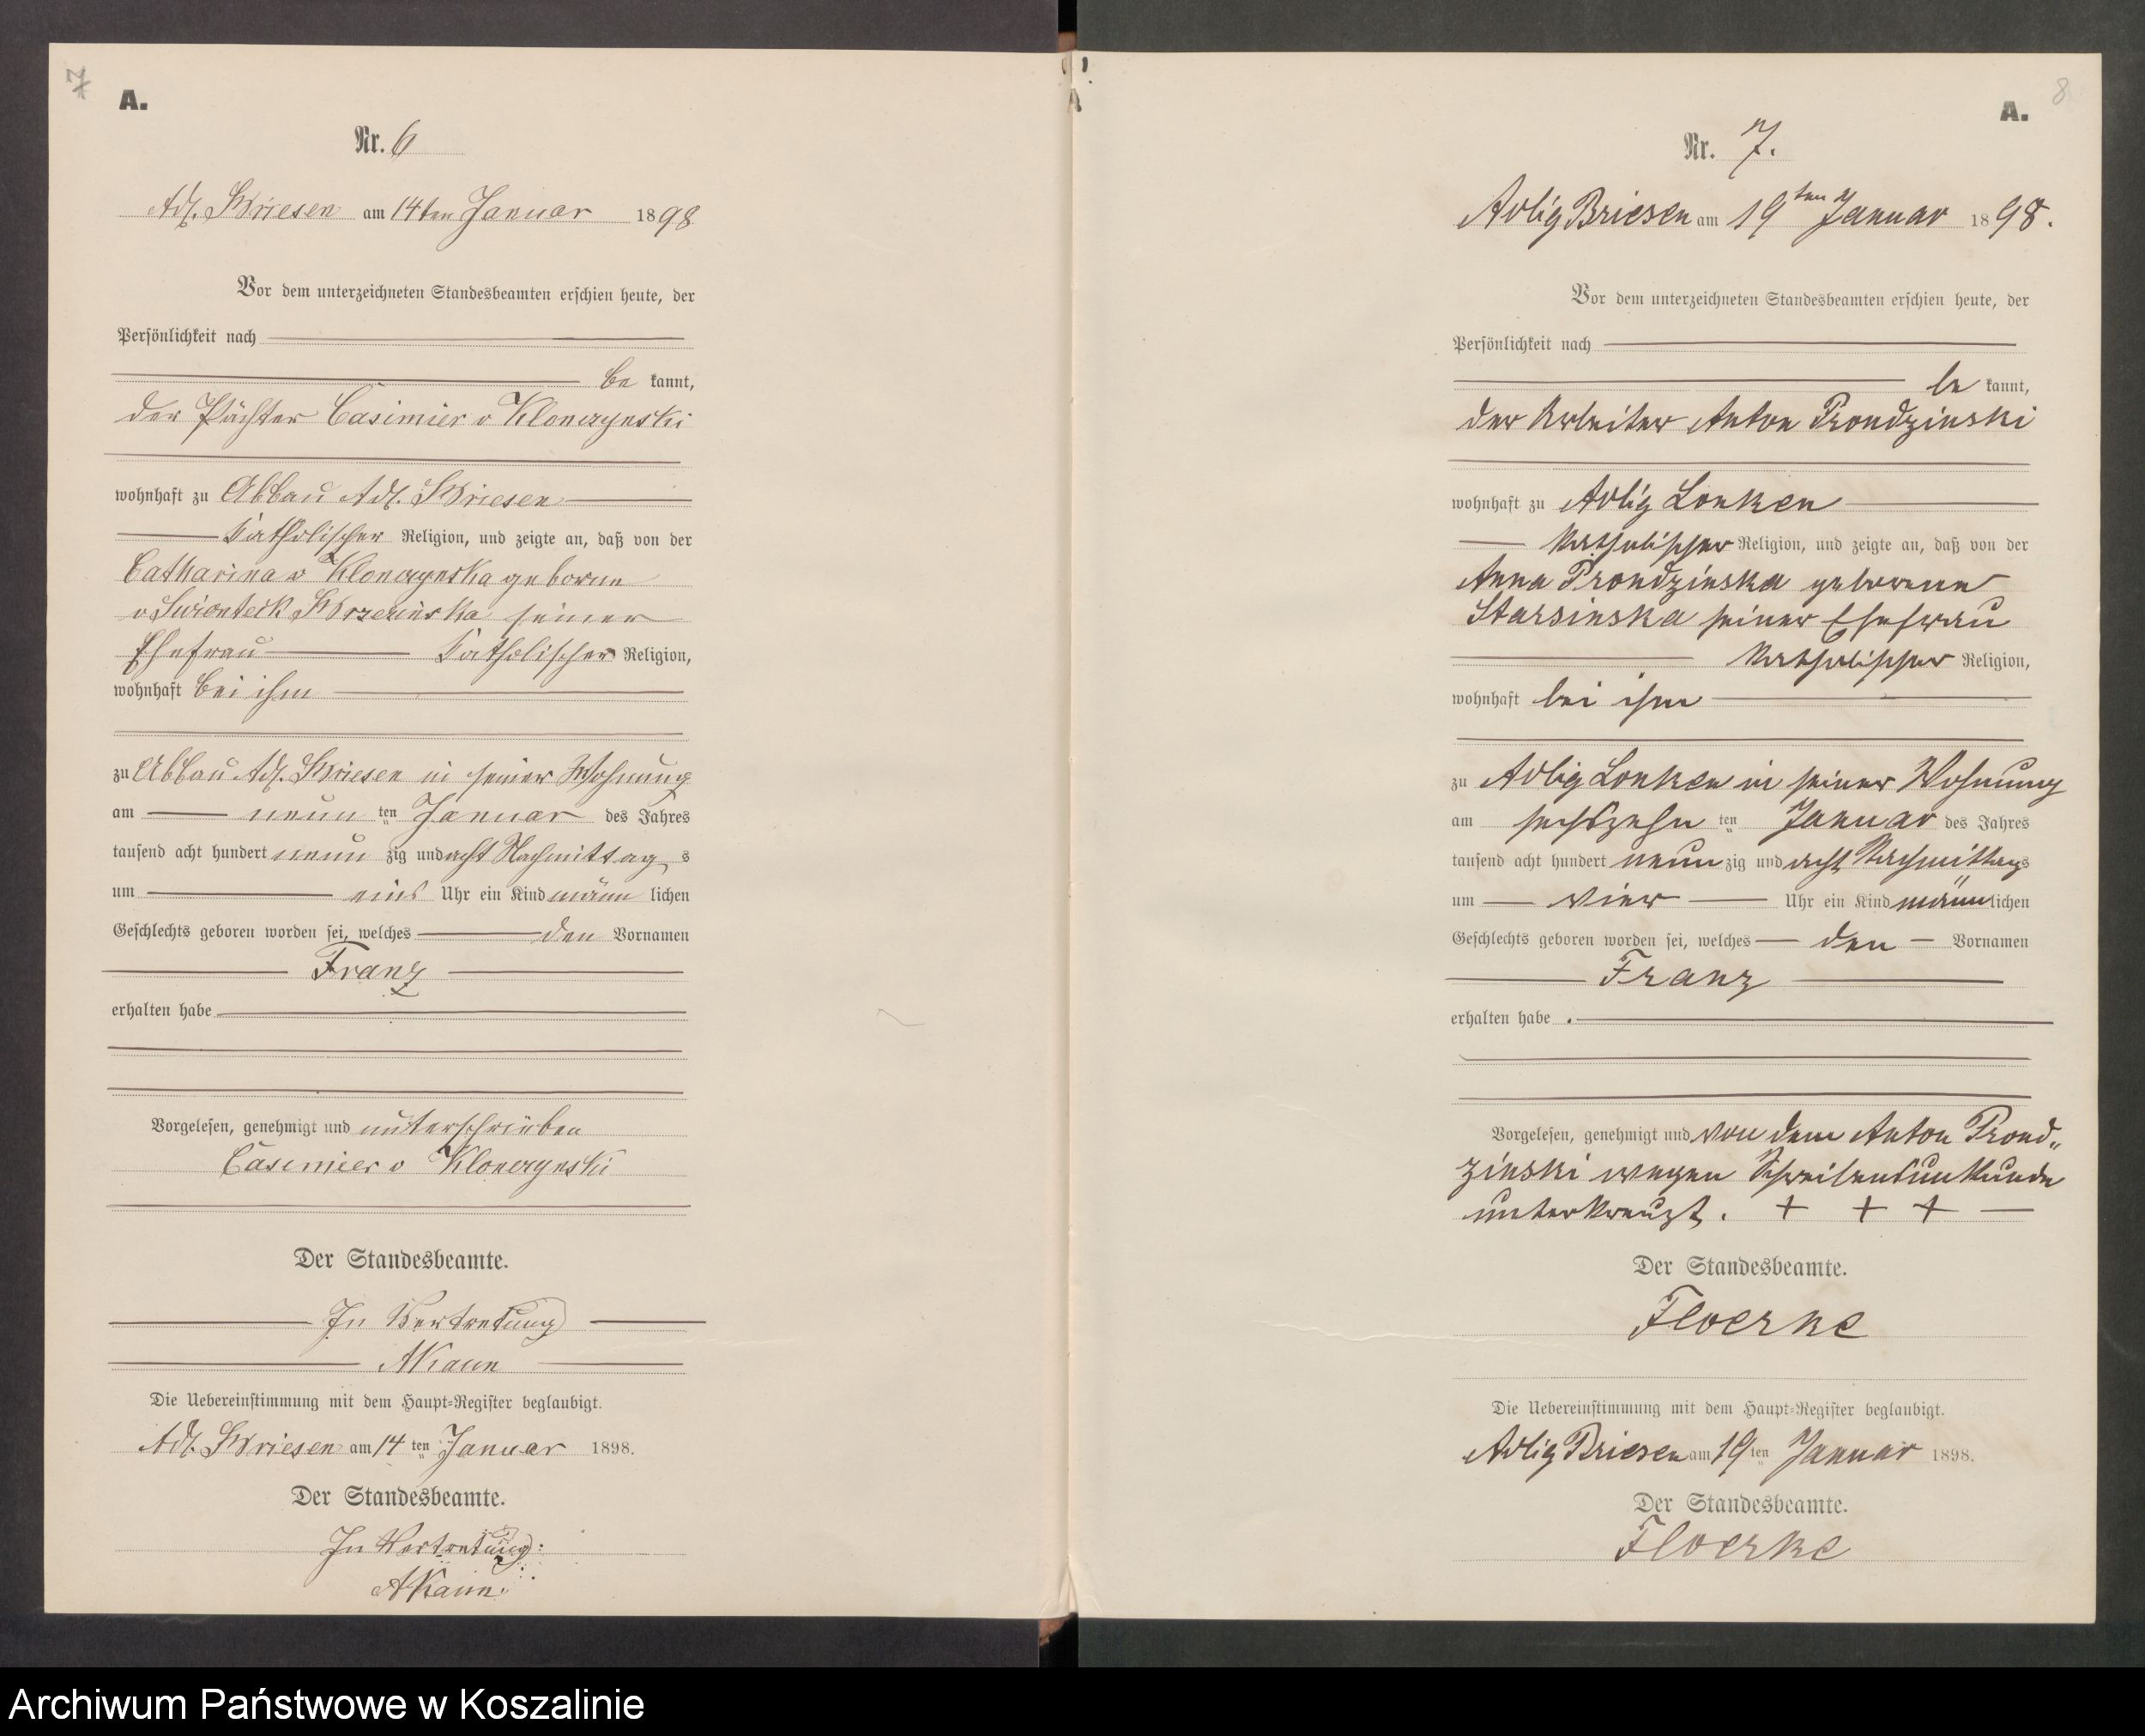 7
A.
Nr. 6
Adl. Briesen am 14ten Januar 1898
Vor dem unterzeichneten Standesbeamten erschien heute, der
Persönlichkeit nach
be kannt,
der Pächter Casimier v Klonczynski
wohnhaft zu Abbau Adl. Briesen
katholischer Religion, und zeigte an, daß von der
Catharina v Klonczynska geborne
v Swionteck Brzezinska seiner
Ehefrau katholischer Religion,
wohnhaft bei ihm
zu Abbau Adl. Briesen in seiner Wohnung
am neun ten Januar des Jahres
tausend acht hundert neun zig und acht Nachmittag s
um eins Uhr ein Kind männ lichen
Geschlechts geboren worden sei, welches den Vornamen
Franz
erhalten habe
Vorgelesen, genehmigt und unterschrieben
Casimier v Klonczynski
Der Standesbeamte.
In Vertretung
AKaun
Die Uebereinstimmung mit dem Haupt-Register beglaubigt.
Adl. Briesen am 14 ten Januar 1898.
Der Standesbeamte.
In Vertretung:
AKaun
8
A.
Nr. 7.
Adlig Briesen am 19ten Januar 1898.
Vor dem unterzeichneten Standesbeamten erschien heute, der
Persönlichkeit nach
be kannt,
der Arbeiter Anton Prondzinski
wohnhaft zu Adlig Lonken
katholischer Religion, und zeigte an, daß von der
Anna Prondzinska geborene
Starsinska seiner Ehefrau
katholischer Religion,
wohnhaft bei ihm
zu Adlig Lonken in seiner Wohnung
am sechszehn ten Januar des Jahres
tausend acht hundert neun zig und acht Nachmittags
um vier Uhr ein Kind männlichen
Geschlechts geboren worden sei, welches den Vornamen
Franz
erhalten habe.
Vorgelesen, genehmigt und von dem Anton Prond„
zinski wegen Schreibensunkunde
unterkreuzt. + + +
Der Standesbeamte.
Floerke
Die Uebereinstimmung mit dem Haupt-Register beglaubigt.
Adlig Briesen am 19 ten Januar 1898.
Der Standesbeamte.
Floerke
Archiwum Państwowe w Koszalinie